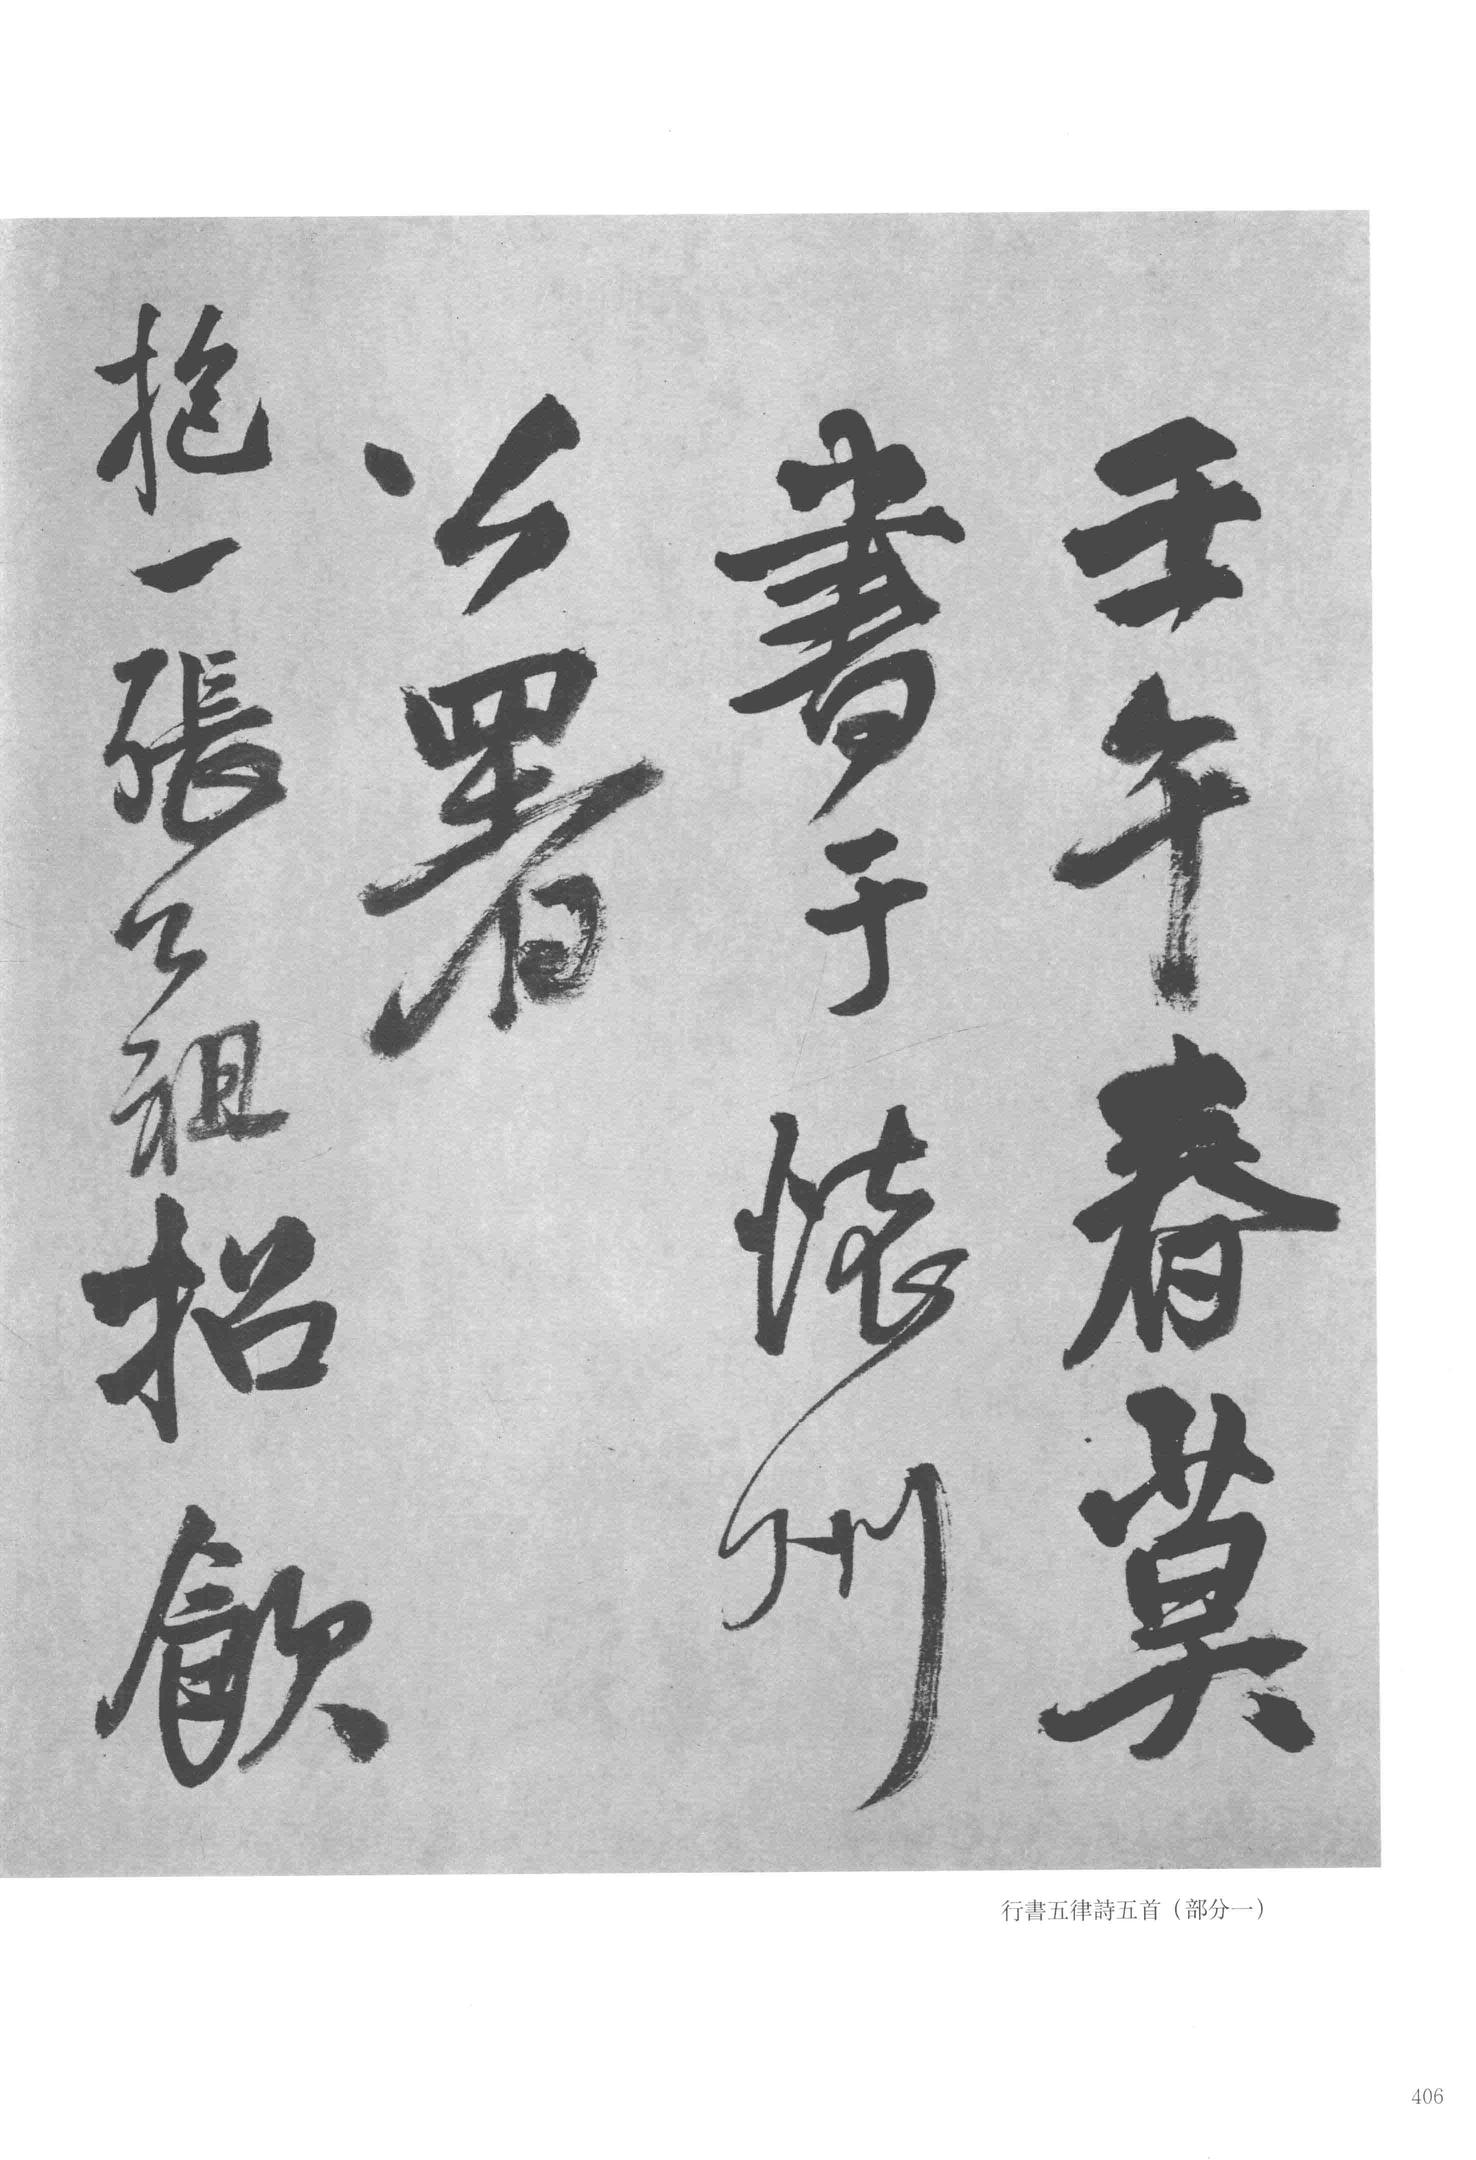 壬午春莫
書于懷州
公署
抱一張公祖招飲
行書五律詩五首（部分一）
406